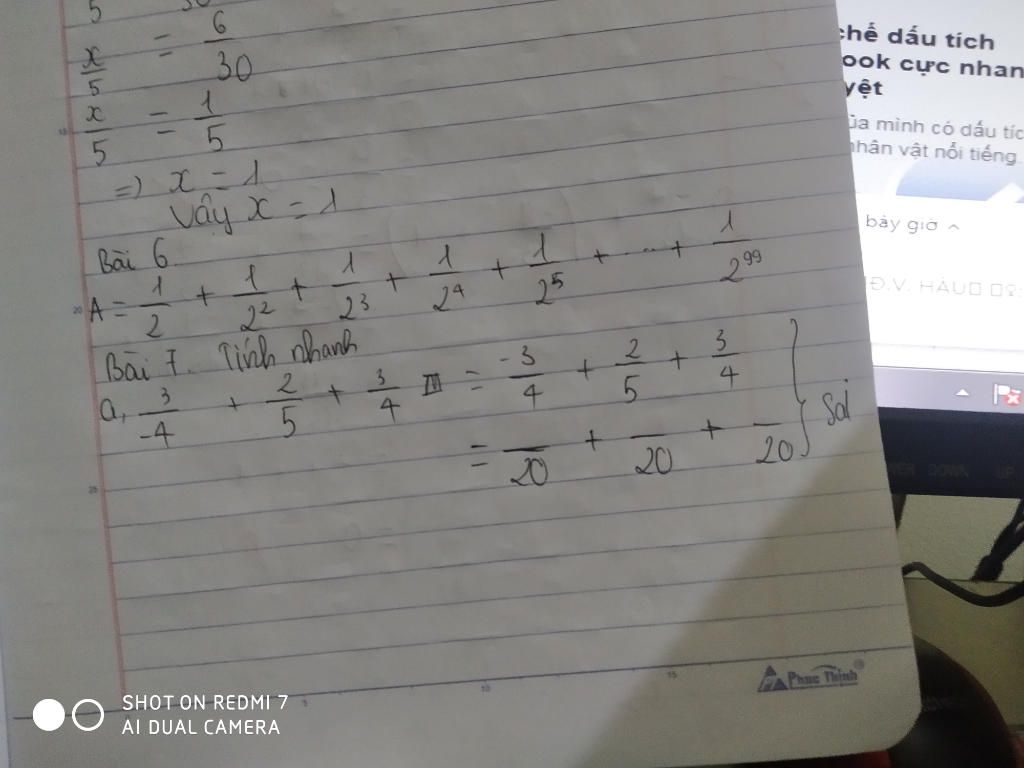 5 30
x/5 = 6/30
x/5 = 1/5
=) x = 1
Vậy x = 1
Bài 6
A = 1/2 + 1/2² + 1/2³ + 1/2⁴ + 1/2⁵ + ... + 1/2⁹⁹
Bài 7. Tính nhanh
a, 3/-4 + 2/5 + 3/4 = -3/4 + 2/5 + 3/4
= /20 + /20 + /20
Sai
chế dấu tích
ook cực nhan
yệt
ủa mình có dấu tíc
nhân vật nổi tiếng
bây giờ
Đ.V. HÀU
DOWN UP
Phuc Thinh
SHOT ON REDMI 7
AI DUAL CAMERA